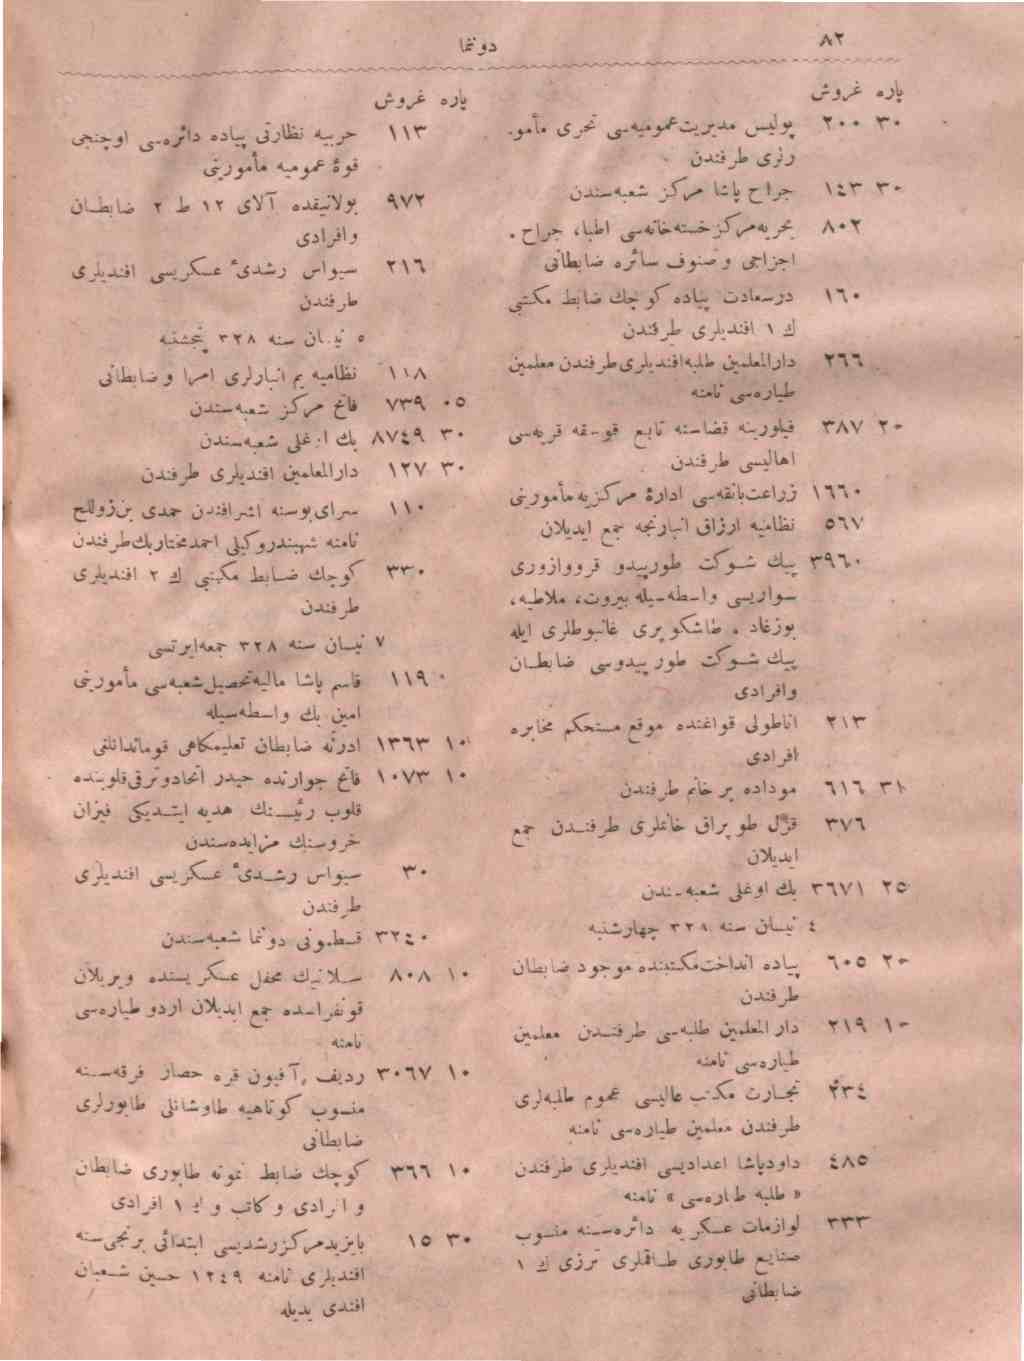 ٨٢
دوننما
پاره غروش
٣٠ ٢٠٠ پوليس مديريت‌عموميه‌سى تحرى مأمو-
رلرى طرفندن
٣٠ ١٤٣ جراح پاشا مركز شعبه‌سندن
٨٠٢ بحريه‌مركزخسته‌خانه‌سى اطبا، جراح،
اجزاجى وصنوف سائره ضابطانى
١٦٠ درسعادت پياده كوچك ضابط مكتبى
ك ١ افنديلرى طرفندن
٢٦٦ دارالمعلمين طلبه‌افنديلرى‌طرفندن معلمين
طياره‌سى نامنه
٢٠ ٣٨٧ فيلورينه قضاسنه تابع قوسقه قريه‌سى
اهاليسى طرفندن
١٦٦٠ زراعت‌بانقه‌سى ادارۀ مركزيه‌مأمورينى
٥٦٧ نظاميه ارزاق انبارنجه جمع ايديلان
٣٩٦٠ پيك شوكت طورپيدو قرووازورى
سواريسى واسطه‌سيله بيروت، ملاطيه،
يوزغاد، طاشكوپرى غانبوطلرى ايله
پيك شوكت طورپيدوسى ضابطان
وافرادى
٢١٣ اناطولى قواغنده موقع مستحكم مخابره
افرادى
٣١ ٦١٦ موداده بر خانم طرفندن
٣٧٦ قزل طوپراق خانملرى طرفندن جمع
ايديلان
٢٥ ٣٦٧١ بك اوغلى شعبه‌سندن
٤ نيسان سنه ٣٢٨ چهارشنبه
٢٠ ٦٠٥ پياده انداخت‌مكتبنده موجود ضابطان
طرفندن
١٠ ٢١٩ دارالمعلمين طلبه‌سى طرفندن معلمين
طياره‌سى نامنه
٢٣٤ تجارت مكتب عاليسى عموم طلبه‌لرى
طرفندن معلمين طياره‌سى نامنه
٤٨٥ داودپاشا اعداديسى افنديلرى طرفندن
« طلبه طياره‌سى » نامنه
٣٣٣ لوازمات عسكريه دائره‌سنه منسوب
صنايع طابورى طاقملرى ترزى ك ١
ضابطانى
پاره غروش
١١٣ حربيه نظارتى پياده دائره‌سى اوچنجى
قوۀ عموميه مأمورينى
٩٧٢ بولانيقده آلاى ١٢ ط ٢ ضابطان
وافرادى
٢١٦ سيواس رشدىٔ عسكريسى افنديلرى
طرفندن
٥ نيسان سنه ٣٢٨ پنجشنبه
١١٨ نظاميه يم انبارلرى امرا وضابطانى
٠٥ ٧٣٩ فاتح مركز شعبه‌سندن
٣٠ ٨٧٤٩ بك اوغلى شعبه‌سندن
٣٠ ١٢٧ دارالمعلمين افنديلرى طرفندن
١١٠ سراى‌بوسنه اشرافندن حمدى
نامنه شهبندروكيلى احمدمختاربك‌طرفندن
٣٣٠ كوچك ضابط مكتبى ك ٢ افنديلرى
طرفندن
٧ نيسان سنه ٣٢٨ جمعه‌ايرتسى
١١٩٠ قاسم پاشا ماليه‌تحصيل‌شعبه‌سى مأمورينى
امين بك واسطه‌سيله
١٠ ١٣٦٣ ادرنه ضابطان تعليمكاهى قوماندانلغى
١٠ ١٠٧٣ فاتح جوارنده حيدر اتحادوترقى‌قلوبنده
قلوب رئيسنك هديه ايتديكى فيزان
خروسنك مزايده‌سندن
٣٠ سيواس رشدىٔ عسكريسى افنديلرى
طرفندن
٣٢٤٠ قسطمونى دوننما شعبه‌سندن
١٠ ٨٠٨ سلانيك محفل عسكريسنده ويريلان
قونفرانسده جمع ايديلان اردو طياره‌سى
نامنه
١٠ ٣٠٦٧ رديف آفيون قره حصار فرقه‌سنه
منسوب كوتاهيه طاوشانلى طابورلرى
ضابطانى
١٠ ٣٦٦ كوچك ضابط نمونه طابورى ضابطان
و افرادى و كاتب و ك ١ افرادى
٣٠ ١٥ بايزيدمركزرشديسى ابتدائى برنجى‌سنه
افنديلرى نامنه ١٢٤٩ حسين شعبان
افندى يديله